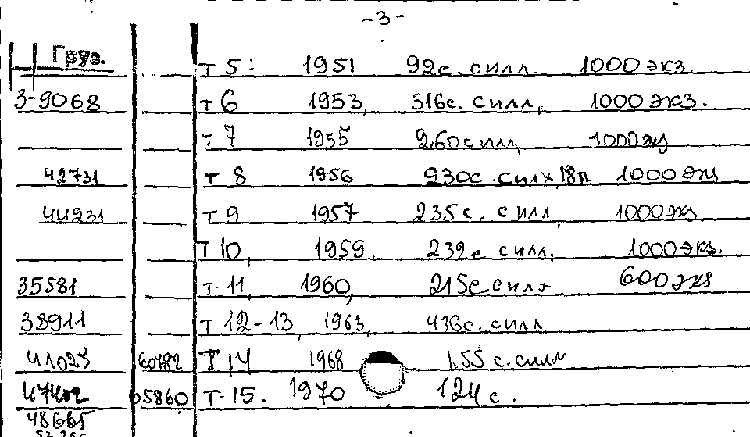 -3-
Груз. Т 5: 1951 92с. силл. 1000 экз.
3-9068 Т 6 1953, 316с. силл, 1000 экз.
Т 7 1955 260 силл, 1000 экз
42731 Т 8 1956 230с. силл, 18л 1000 экз
44231 Т 9 1957 235с. силл, 1000 экз
Т 10, 1959. 239с силл, 1000 экз.
35581 Т-11, 1960, 215с. силл 600 экз
38911 Т 12-13, 1963, 436с. силл
41025 60782 Т 14 1968 155 с. силл
47402 65860 Т-15. 1970 124 с.
48665